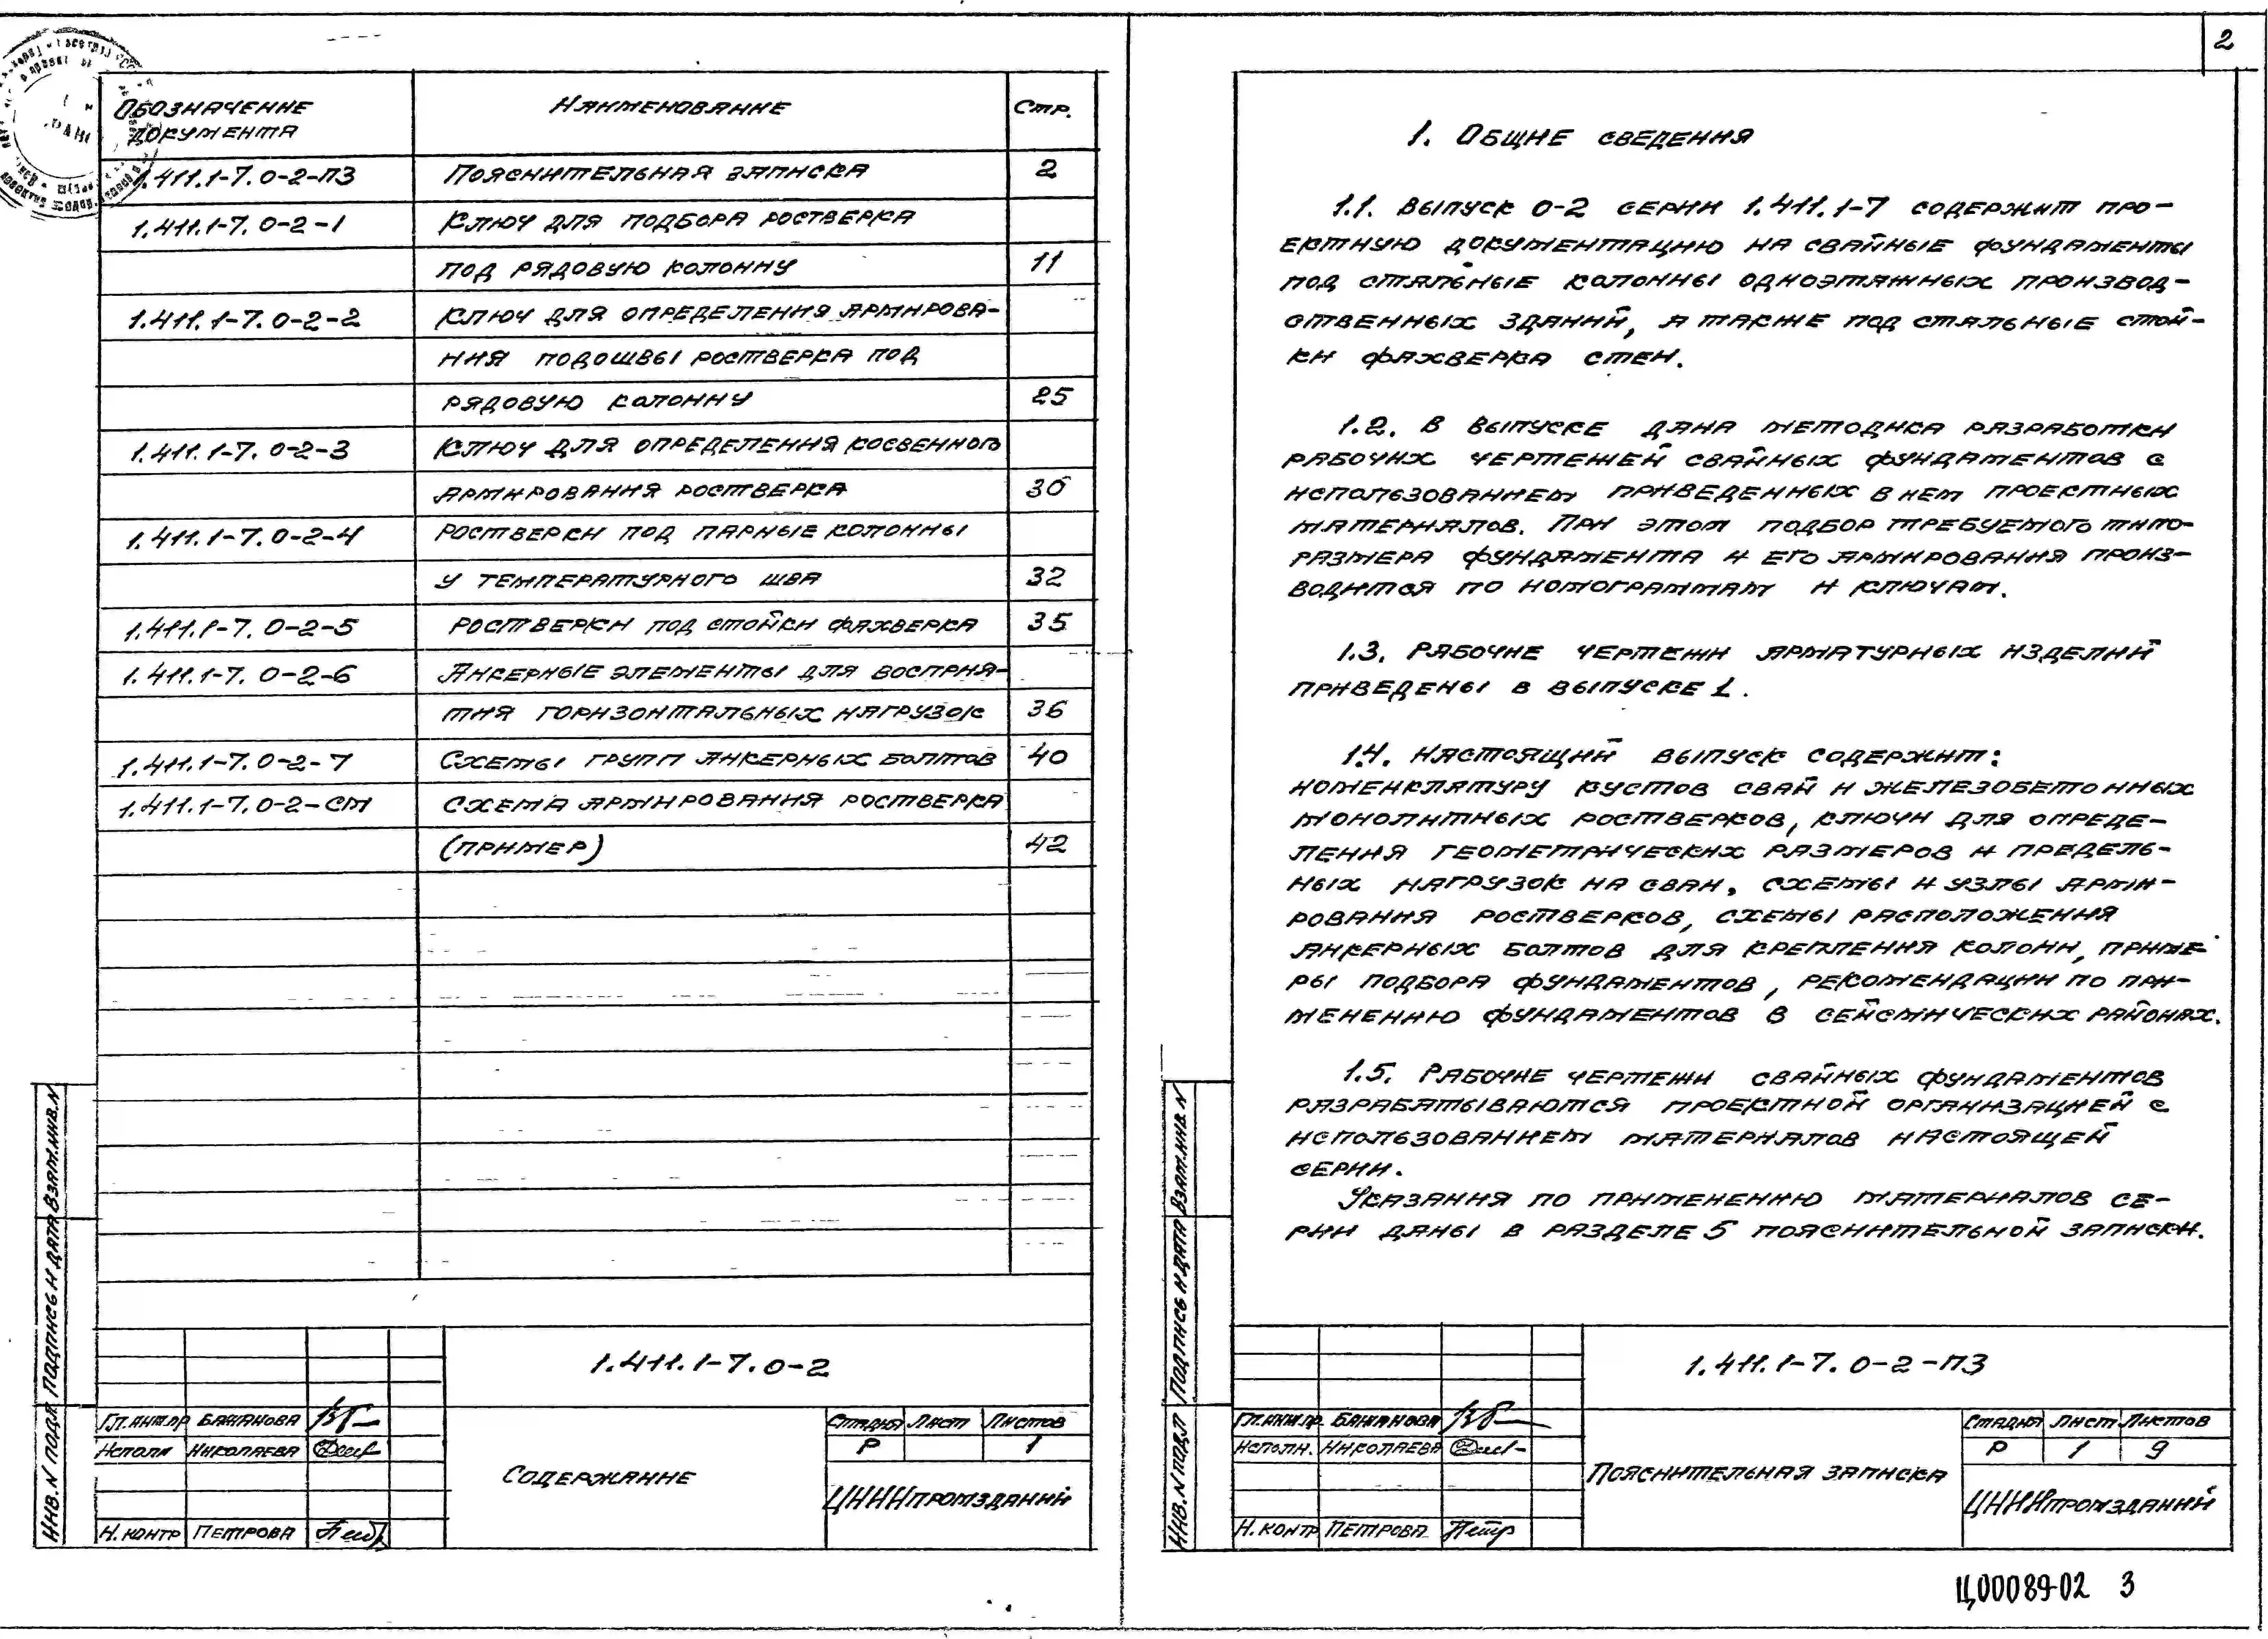 Обозначение документа Наименование Стр.
1.411.1-7.0-2-ПЗ Пояснительная записка 2
1.411.1-7.0-2-1 Ключ для подбора ростверка
под рядовую колонну 11
1.411.1-7.0-2-2 Ключ для определения армирова-
ния подошвы ростверка под
рядовую колонну 25
1.411.1-7.0-2-3 Ключ для определения косвенного
армирования ростверка 30
1.411.1-7.0-2-4 Ростверки под парные колонны
у температурного шва 32
1.411.1-7.0-2-5 Ростверки под стойки фахверка 35
1.411.1-7.0-2-6 Анкерные элементы для восприя-
тия горизонтальных нагрузок 36
1.411.1-7.0-2-7 Схемы групп анкерных болтов 40
1.411.1-7.0-2-СМ Схема армирования ростверка
(пример) 42
Инв.N подл. Подпись и дата Взам.инв.N
1.411.1-7.0-2
Гл.инж.пр Бажанова
Исполн Николаева
Н.контр Петрова
Содержание
Стадия Лист Листов
Р 1
ЦНИИпромзданий
2
1. Общие сведения
1.1. Выпуск 0-2 серии 1.411.1-7 содержит про-
ектную документацию на свайные фундаменты
под стальные колонны одноэтажных производ-
ственных зданий, а также под стальные стой-
ки фахверка стен.
1.2. В выпуске дана методика разработки
рабочих чертежей свайных фундаментов с
использованием приведенных в нем проектных
материалов. При этом подбор требуемого типо-
размера фундамента и его армирования произ-
водится по номограммам и ключам.
1.3. Рабочие чертежи арматурных изделий
приведены в выпуске 1.
1.4. Настоящий выпуск содержит:
номенклатуру кустов свай и железобетонных
монолитных ростверков, ключи для опреде-
ления геометрических размеров и предель-
ных нагрузок на сваи, схемы и узлы арми-
рования ростверков, схемы расположения
анкерных болтов для крепления колонн, приме-
ры подбора фундаментов, рекомендации по при-
менению фундаментов в сейсмических районах.
1.5. Рабочие чертежи свайных фундаментов
разрабатываются проектной организацией с
использованием материалов настоящей
серии.
Указания по применению материалов се-
рии даны в разделе 5 пояснительной записки.
Инв.N подл Подпись и дата Взам.инв.N
1.411.1-7.0-2-ПЗ
Гл.инж.пр. Бажанова
Исполн. Николаева
Н.контр Петрова
Пояснительная записка
Стадия Лист Листов
Р 1 9
ЦНИИпромзданий
Ц00089-02 3